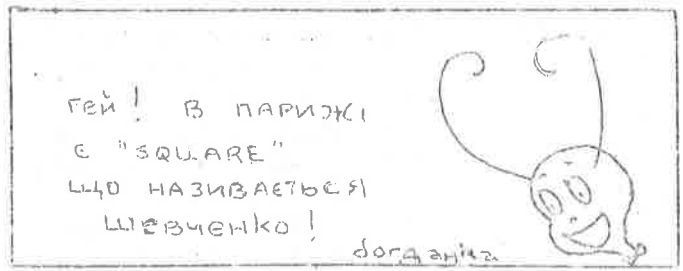 ГЕЙ! В ПАРИЖІ
Є "SQUARE"
ЩО НАЗИВАЄТЬСЯ
ШЕВЧЕНКО!